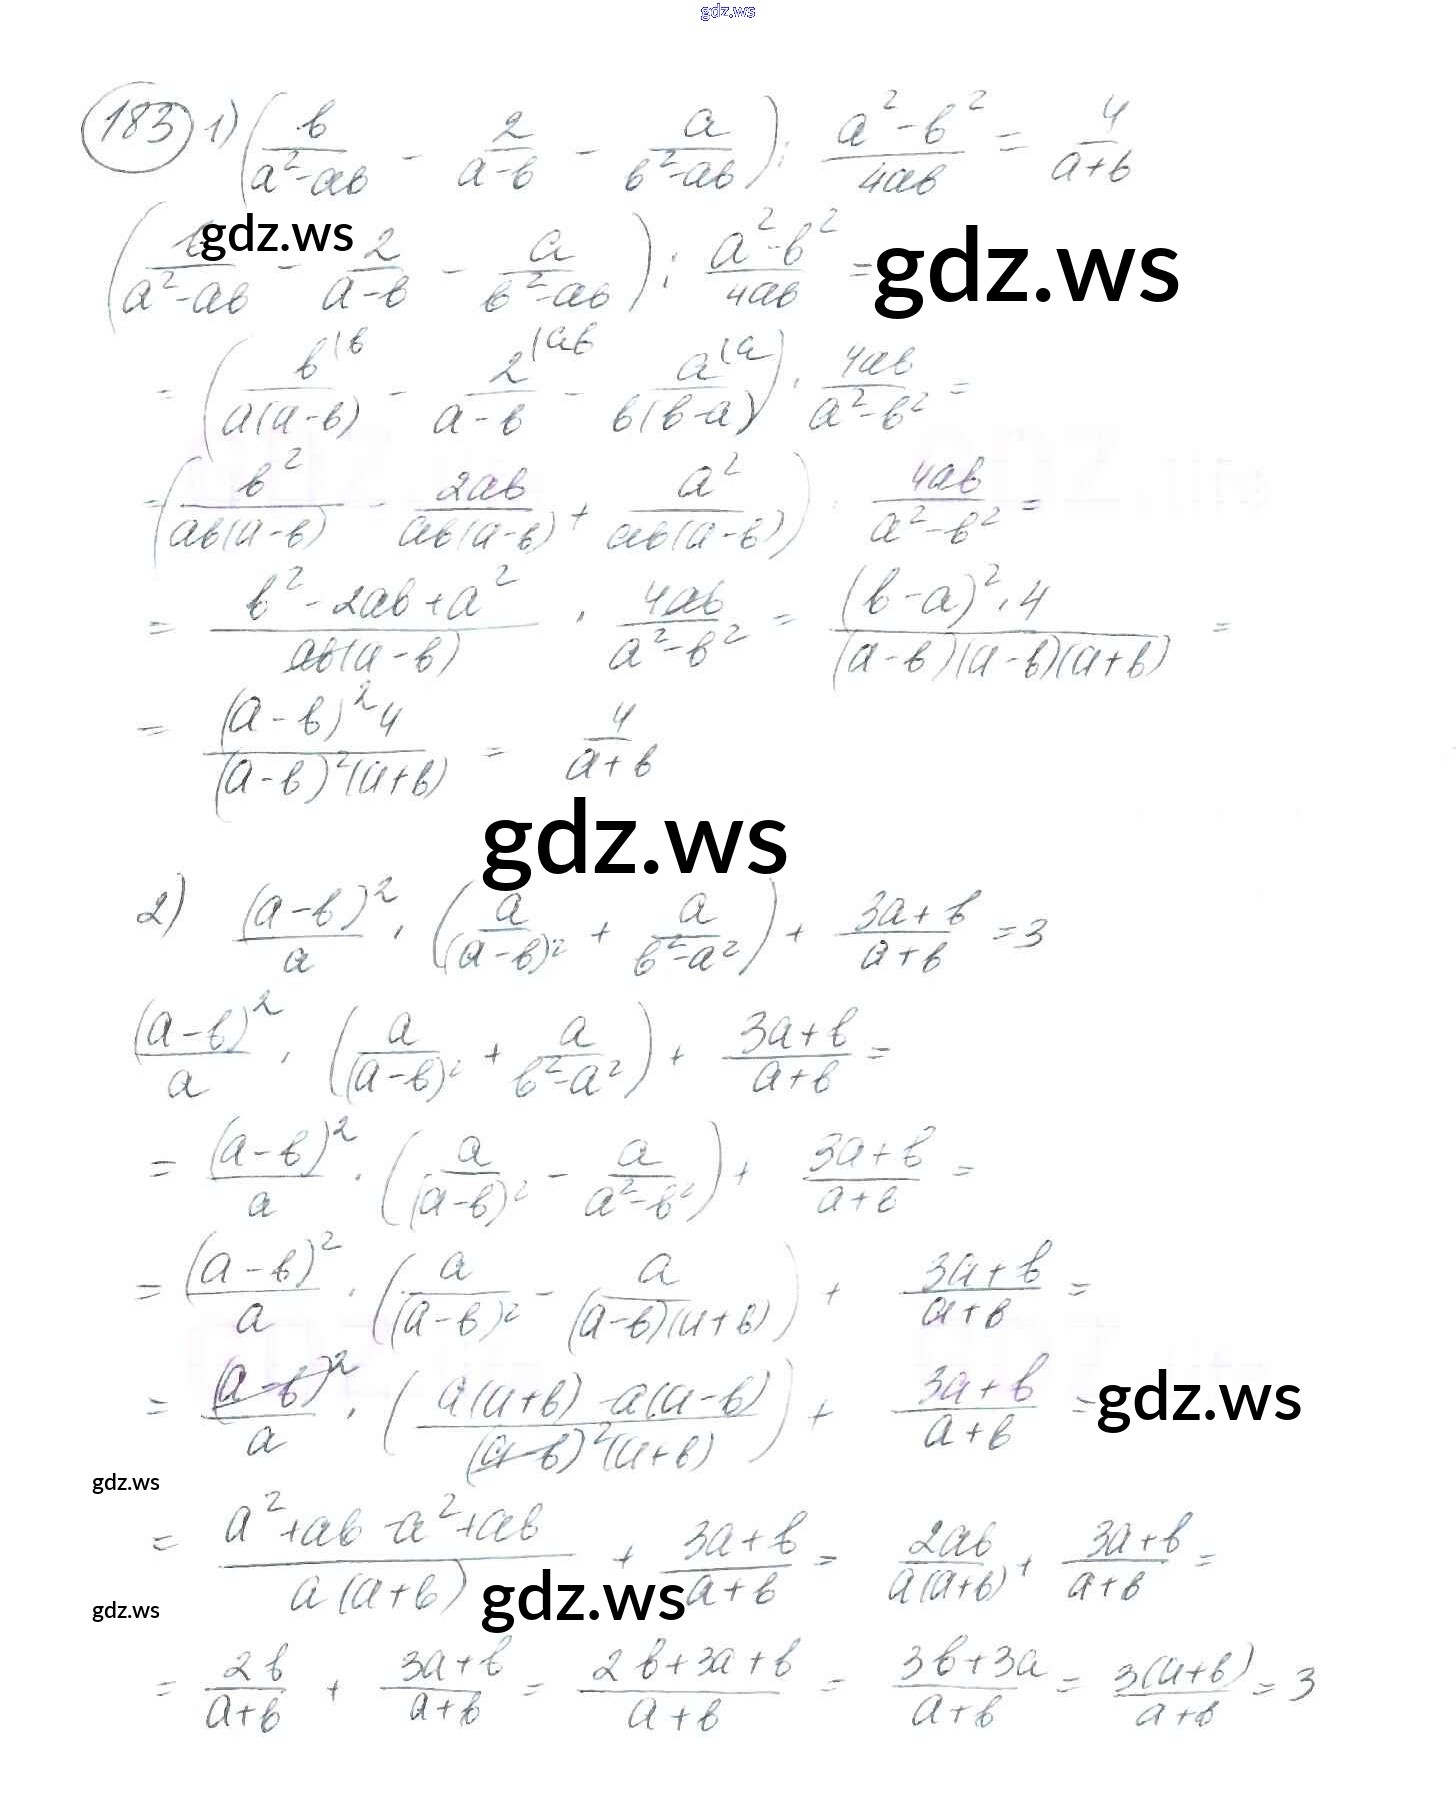 gdz.ws
183 1) (b/(a²-ab) - 2/(a-b) - a/(b²-ab)) : (a²-b²)/(4ab) = 4/(a+b)
(b/(a²-ab) - 2/(a-b) - a/(b²-ab)) : (a²-b²)/(4ab) =
gdz.ws
gdz.ws
= (b(b/(a(a-b)) - 2(ab/(a-b) - a(a/(b(b-a))) · 4ab/(a²-b²) =
= (b²/(ab(a-b)) - 2ab/(ab(a-b)) + a²/(ab(a-b))) · 4ab/(a²-b²) =
= (b²-2ab+a²)/(ab(a-b)) · 4ab/(a²-b²) = ((b-a)²·4)/((a-b)(a-b)(a+b)) =
= ((a-b)²4)/((a-b)²(a+b)) = 4/(a+b)
gdz.ws
2) (a-b)²/a · (a/(a-b)² + a/(b²-a²)) + (3a+b)/(a+b) = 3
(a-b)²/a · (a/(a-b)² + a/(b²-a²)) + (3a+b)/(a+b) =
= (a-b)²/a · (a/(a-b)² - a/(a²-b²)) + (3a+b)/(a+b) =
= (a-b)²/a · (a/(a-b)² - a/((a-b)(a+b))) + (3a+b)/(a+b) =
= (a-b)²/a · ((a(a+b)-a(a-b))/((a-b)²(a+b))) + (3a+b)/(a+b) =
gdz.ws
gdz.ws
= (a²+ab-a²+ab)/(a(a+b)) + (3a+b)/(a+b) = 2ab/(a(a+b)) + (3a+b)/(a+b) =
gdz.ws
gdz.ws
= 2b/(a+b) + (3a+b)/(a+b) = (2b+3a+b)/(a+b) = (3b+3a)/(a+b) = 3(a+b)/(a+b) = 3